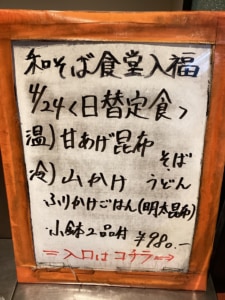 和そば食堂入福
4/24<日替定食>
温)甘あげ昆布
そば
冷)山かけ
うどん
ふりかけごはん(明太昆布)
・小鉢2品付 ¥980.-
=入口はコチラ⇒